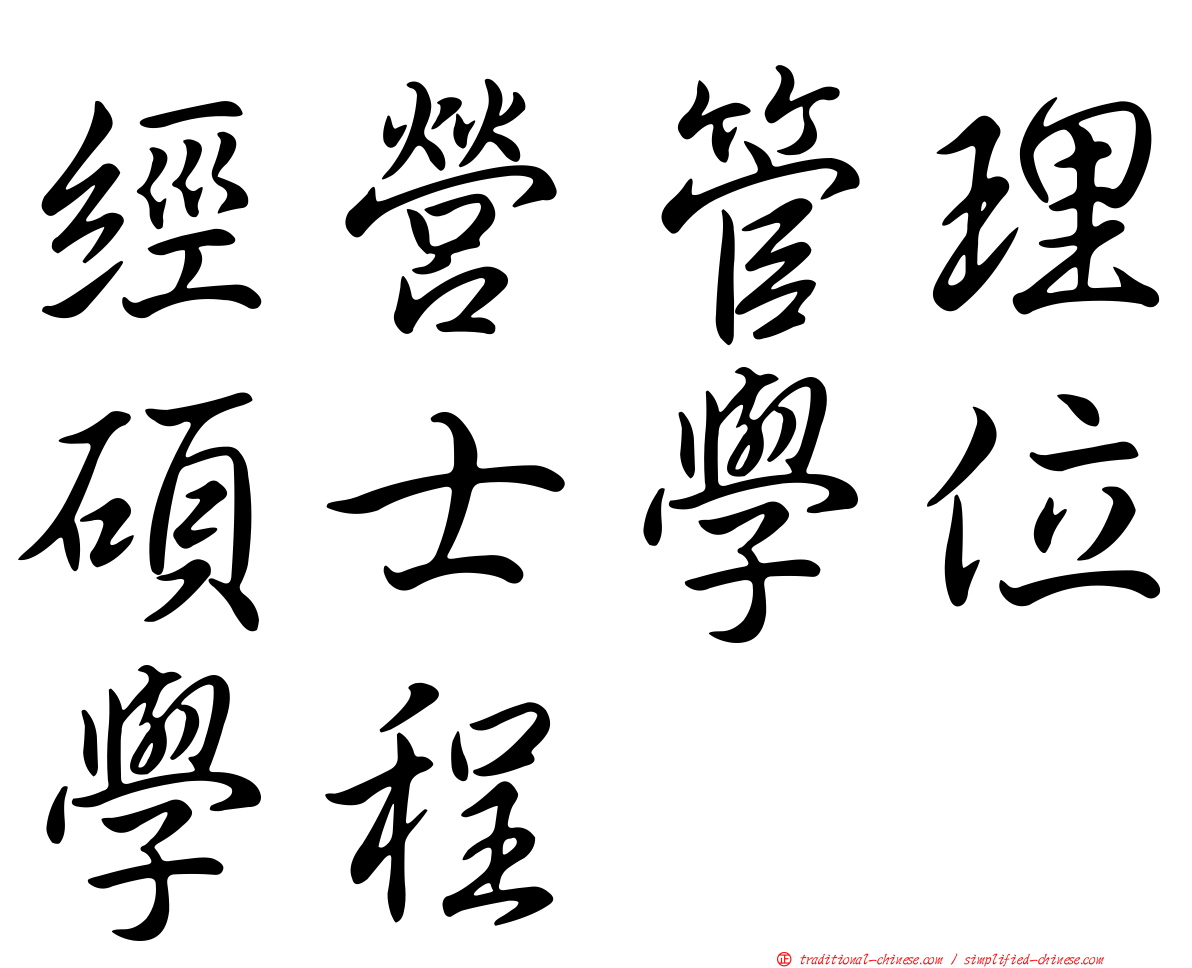 經營管理
碩士學位
學程
㊣ traditional-chinese.com / simplified-chinese.com